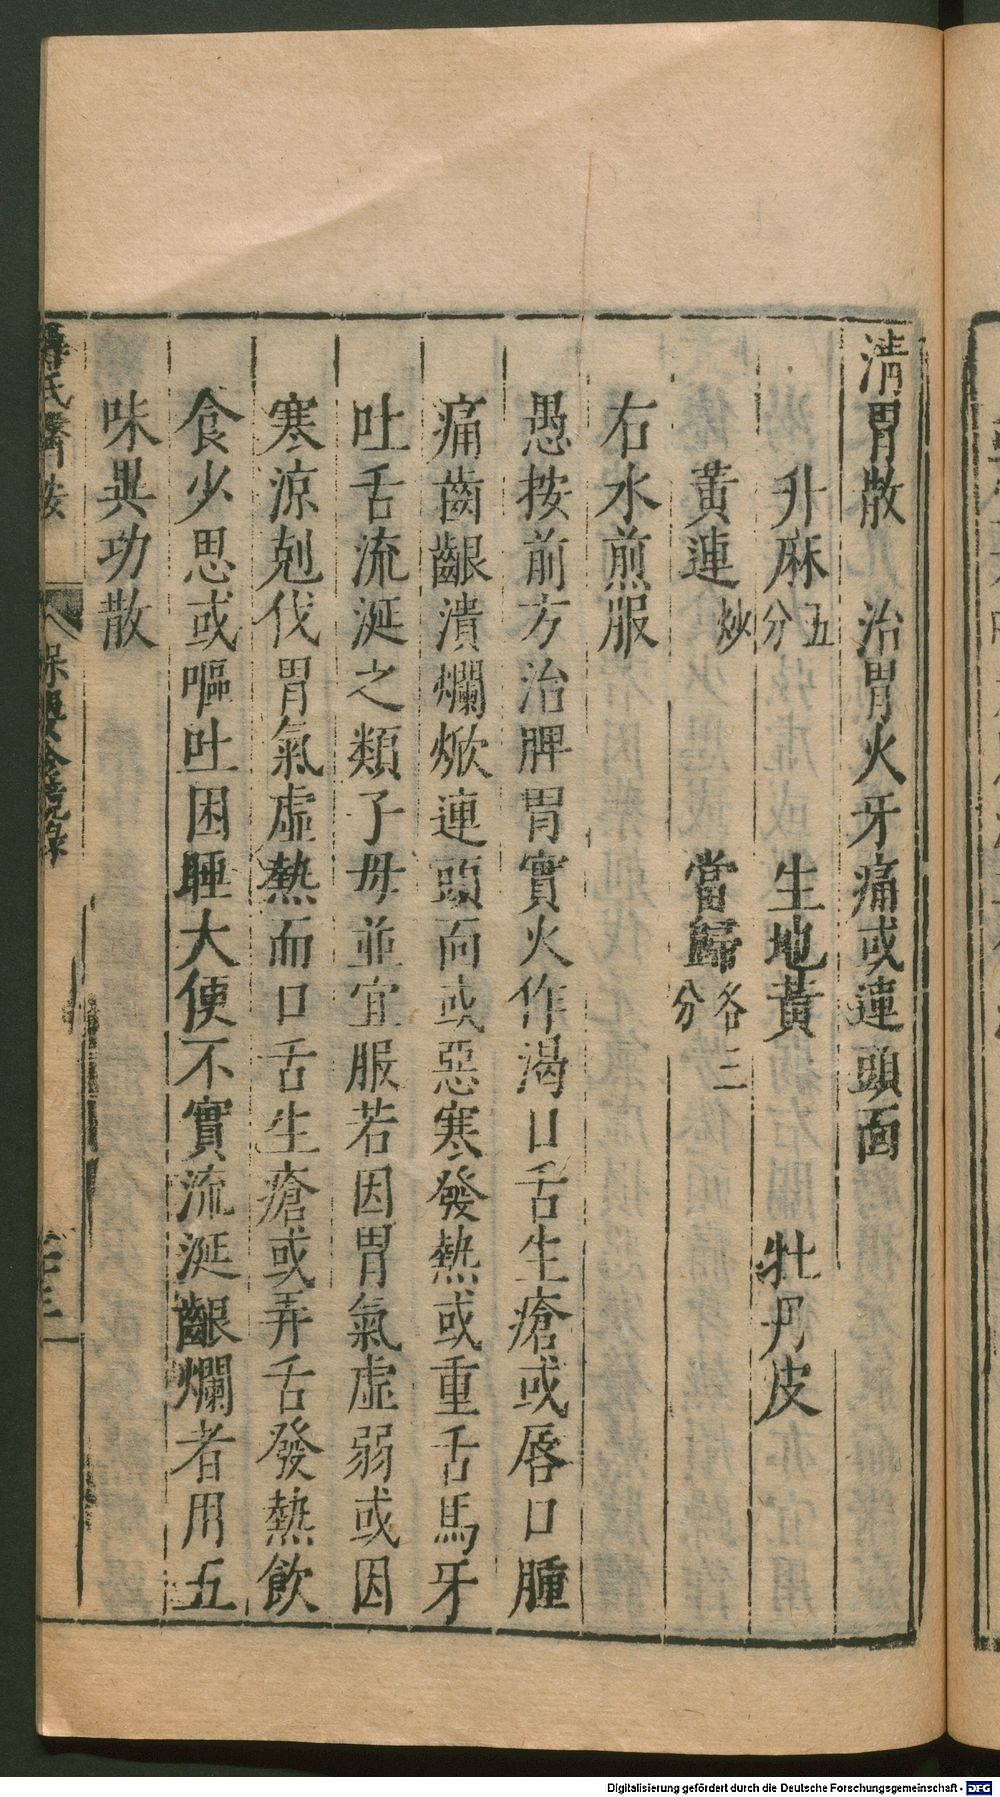 清胃散　治胃火牙痛或連頭面
升麻五分　生地黃　牡丹皮
黃連炒　當歸各三分
右水煎服
愚按前方治脾胃實火作渴口舌生瘡或唇口腫
痛齒齦潰爛焮連頭面或惡寒發熱或重舌馬牙
吐舌流涎之類子母並宜服若因胃氣虛弱或因
寒涼剋伐胃氣虛熱而口舌生瘡或弄舌發熱飲
食少思或嘔吐困睡大便不實流涎齦爛者用五
味異功散
氏醫按　保嬰金鏡錄
Digitalisierung gefördert durch die Deutsche Forschungsgemeinschaft - DFG